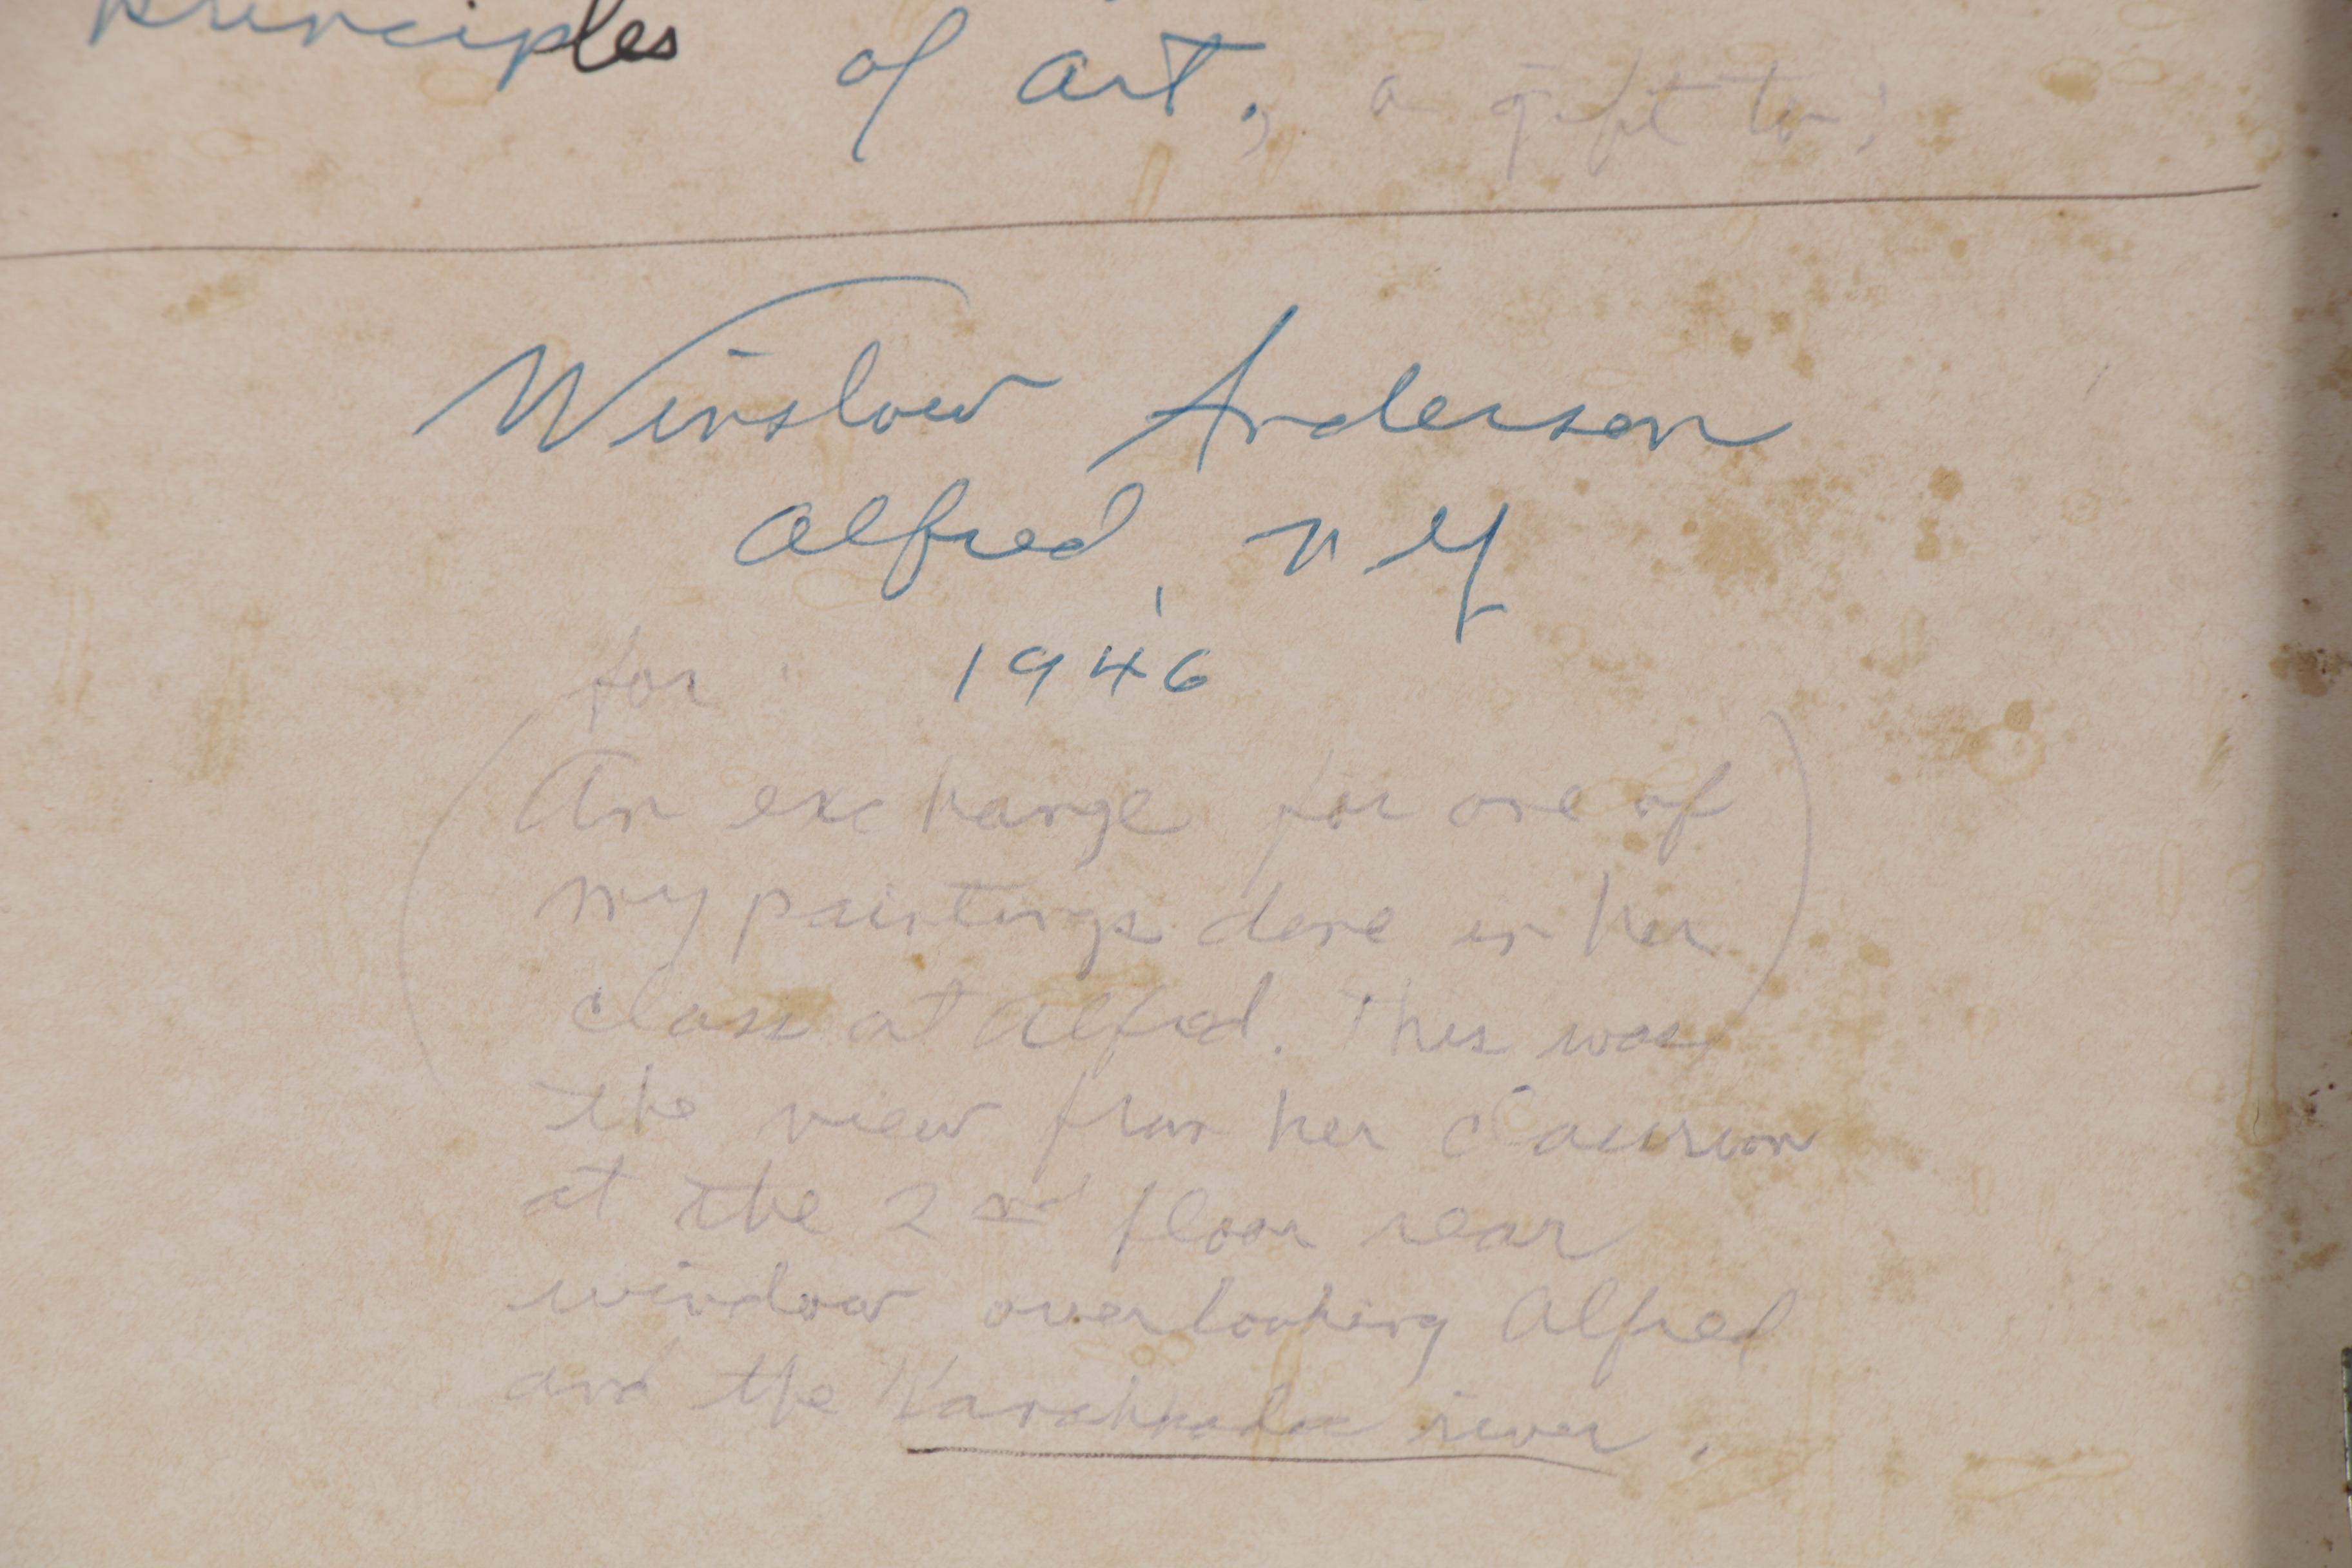 principles of art., a gift to:
Winslow Anderson
Alfred, N Y
1946
for:
(An exchange for one of
my paintings done in her
class at Alfred.) This was
the view from her classroom
at the 2nd floor rear
window overlooking Alfred
and the river.